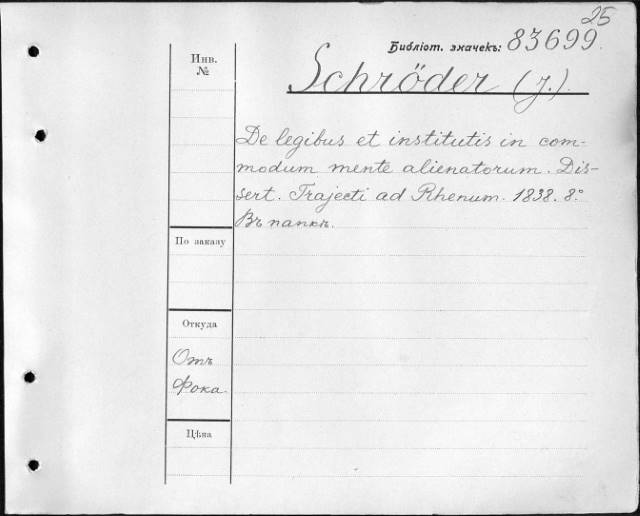 25
Библіот. значекъ: 83699.
Инв.
№
Schröder (J.).
De legibus et institutis in com-
modum mente alienatorum. Dis-
sert. Trajecti ad Rhenum. 1838. 8.°
Въ папкѣ.
По заказу
Откуда
Отъ
Фока.
Цѣна